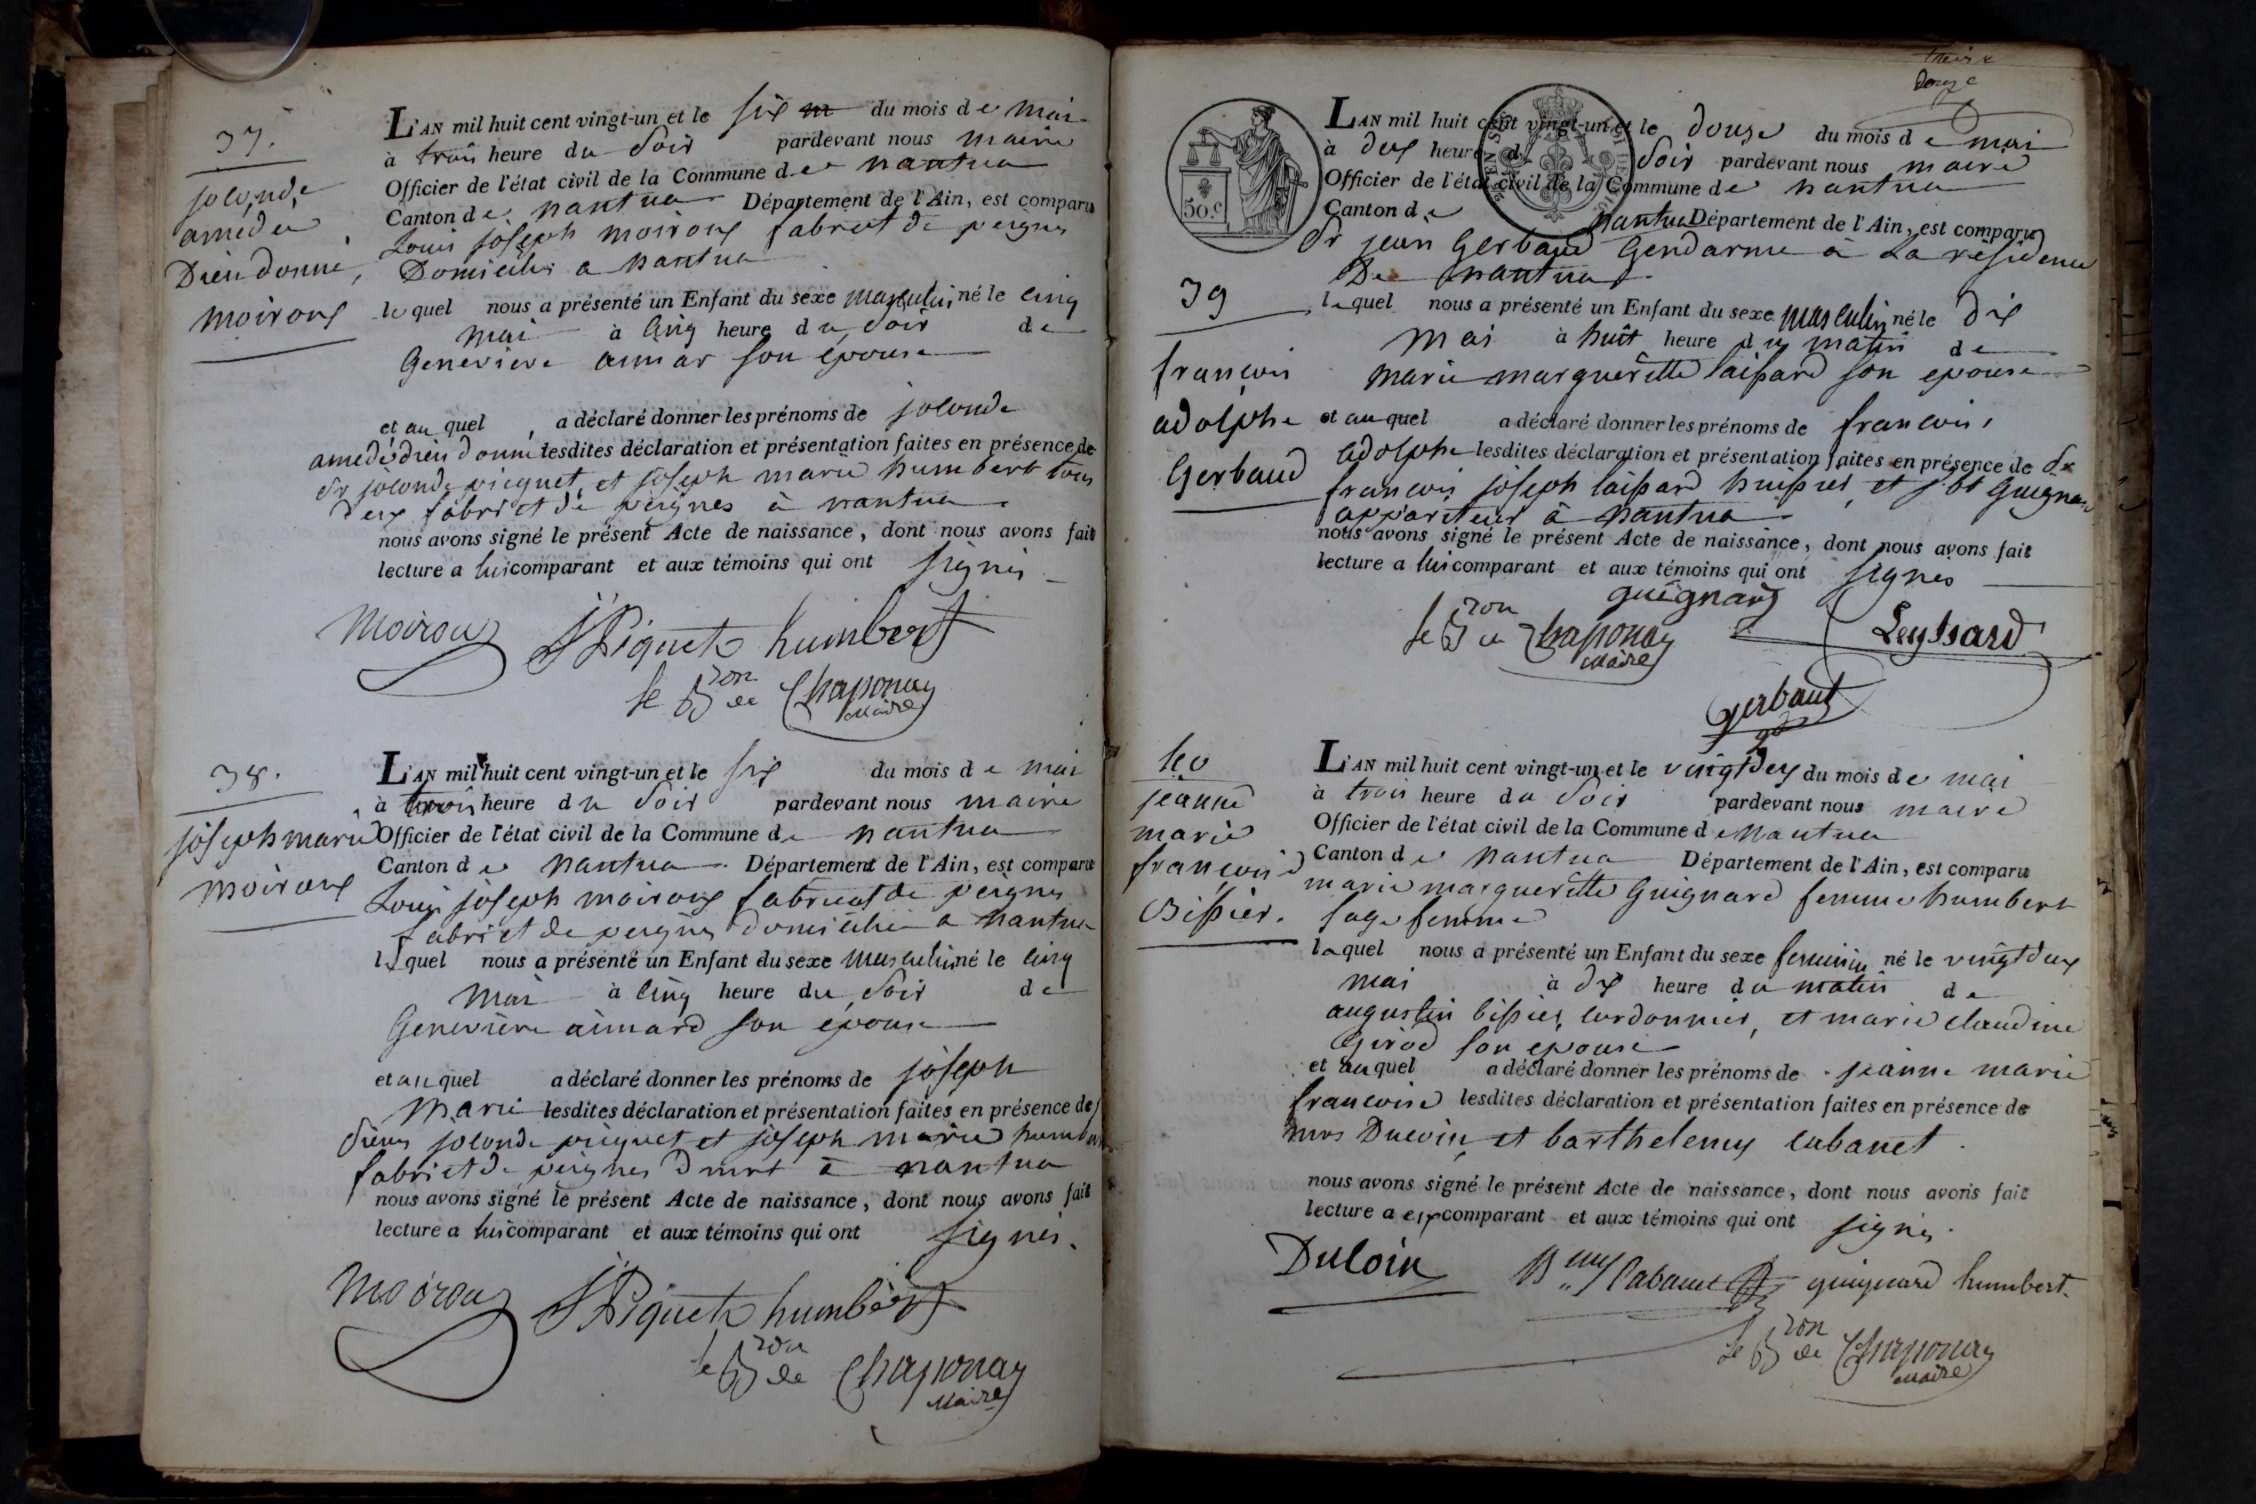 37.
jolonde
amédée
Dieudonné,
moiroux
L'AN mil huit cent vingt-un et le six du mois de mai
à trois heure du Soir pardevant nous maire
Officier de l'état civil de la Commune de nantua
Canton de nantua Département de l'Ain, est comparu
Louis joseph moiroux fabrict de peignes
Domicilié a nantua
lequel nous a présenté un Enfant du sexe masculin né le cinq
mai à cinq heure du Soir de
Genevieve aimar son épouse
et au quel a déclaré donner les prénoms de jolonde
amedé dieudonné lesdites déclaration et présentation faites en présence de
Sr jolonde picquet et joseph marie humbert tous
deux fabrict de peignes à nantua
nous avons signé le présent Acte de naissance, dont nous avons fait
lecture a lui comparant et aux témoins qui ont signés
Moiroux JPiquet humbert
le Bron de Chaponay
Maire
38.
joseph marie
moiroux
L'AN mil huit cent vingt-un et le six du mois de mai
à trois heure du Soir pardevant nous maire
Officier de l'état civil de la Commune de nantua
Canton de nantua Département de l'Ain, est comparu
Louis joseph moiroux fabricat de peignes
fabrict de peignes domicilié a nantua
lequel nous a présenté un Enfant du sexe masculin né le cinq
mai à cinq heure du Soir de
Genevieve aimard son épouse
et au quel a déclaré donner les prénoms de joseph
Marie lesdites déclaration et présentation faites en présence de
Sieurs jolonde picquet et joseph marie humbert
fabrict de peignes dmrt à nantua
nous avons signé le présent Acte de naissance, dont nous avons fait
lecture a lui comparant et aux témoins qui ont signés.
Moiroux JPiquet humbert
le Bron de Chaponay
Maire
douze
50.c
39
françois
adolphe
Gerbaud
L'AN mil huit cent vingt-un et le douze du mois de mai
à dix heure du Soir pardevant nous maire
Officier de l'état civil de la Commune de nantua
Canton de nantua Département de l'Ain, est comparu
Sr jean Gerbaud Gendarme à la résidence
De nantua
lequel nous a présenté un Enfant du sexe masculin né le dix
mai à huit heure du matin de
marie marguerette laissard son epouse
et au quel a déclaré donner les prénoms de francois,
adolphe lesdites déclaration et présentation faites en présence de Sr
francois joseph laissard huissier, et j bt Guignard
appariteur à nantua
nous avons signé le présent Acte de naissance, dont nous avons fait
lecture a lui comparant et aux témoins qui ont signés
guignard
le Bron de Chaponay
Maire
Leyssard
gerbaut
40
jeanne
marie
françoise
Bissier.
L'AN mil huit cent vingt-un et le vingt deux du mois de mai
à trois heure du Soir pardevant nous maire
Officier de l'état civil de la Commune de nantua
Canton de nantua Département de l'Ain, est comparu
marie marguerette Guignard femme humbert
sage femme
laquel nous a présenté un Enfant du sexe feminin né le vingt deux
mai à dix heure du matin de
augustin bissier, cordonnier, et marie claudine
Girod son epouse
et au quel a déclaré donner les prénoms de jeanne marie
francoise lesdites déclaration et présentation faites en présence de
mrs Duloin, et barthelemy cabanet.
nous avons signé le présent Acte de naissance, dont nous avons fait
lecture a eux comparant et aux témoins qui ont signés.
Duloin Bmy Cabanet guignard humbert.
le Bron de Chaponay
Maire